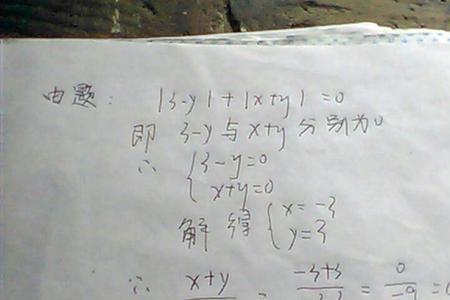 由题: |3-y|+|x+y|=0
即 3-y与x+y分别为0
∴ {3-y=0
x+y=0
解得 {x=-3
y=3
∴ x+y = -3+3 = 0/-9 = 0